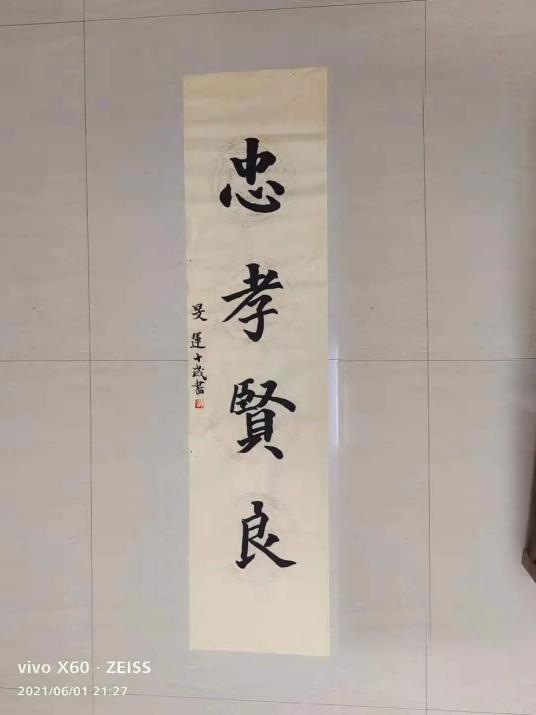 忠孝賢良
旻運十歲書
vivo X60 · ZEISS
2021/06/01 21:27